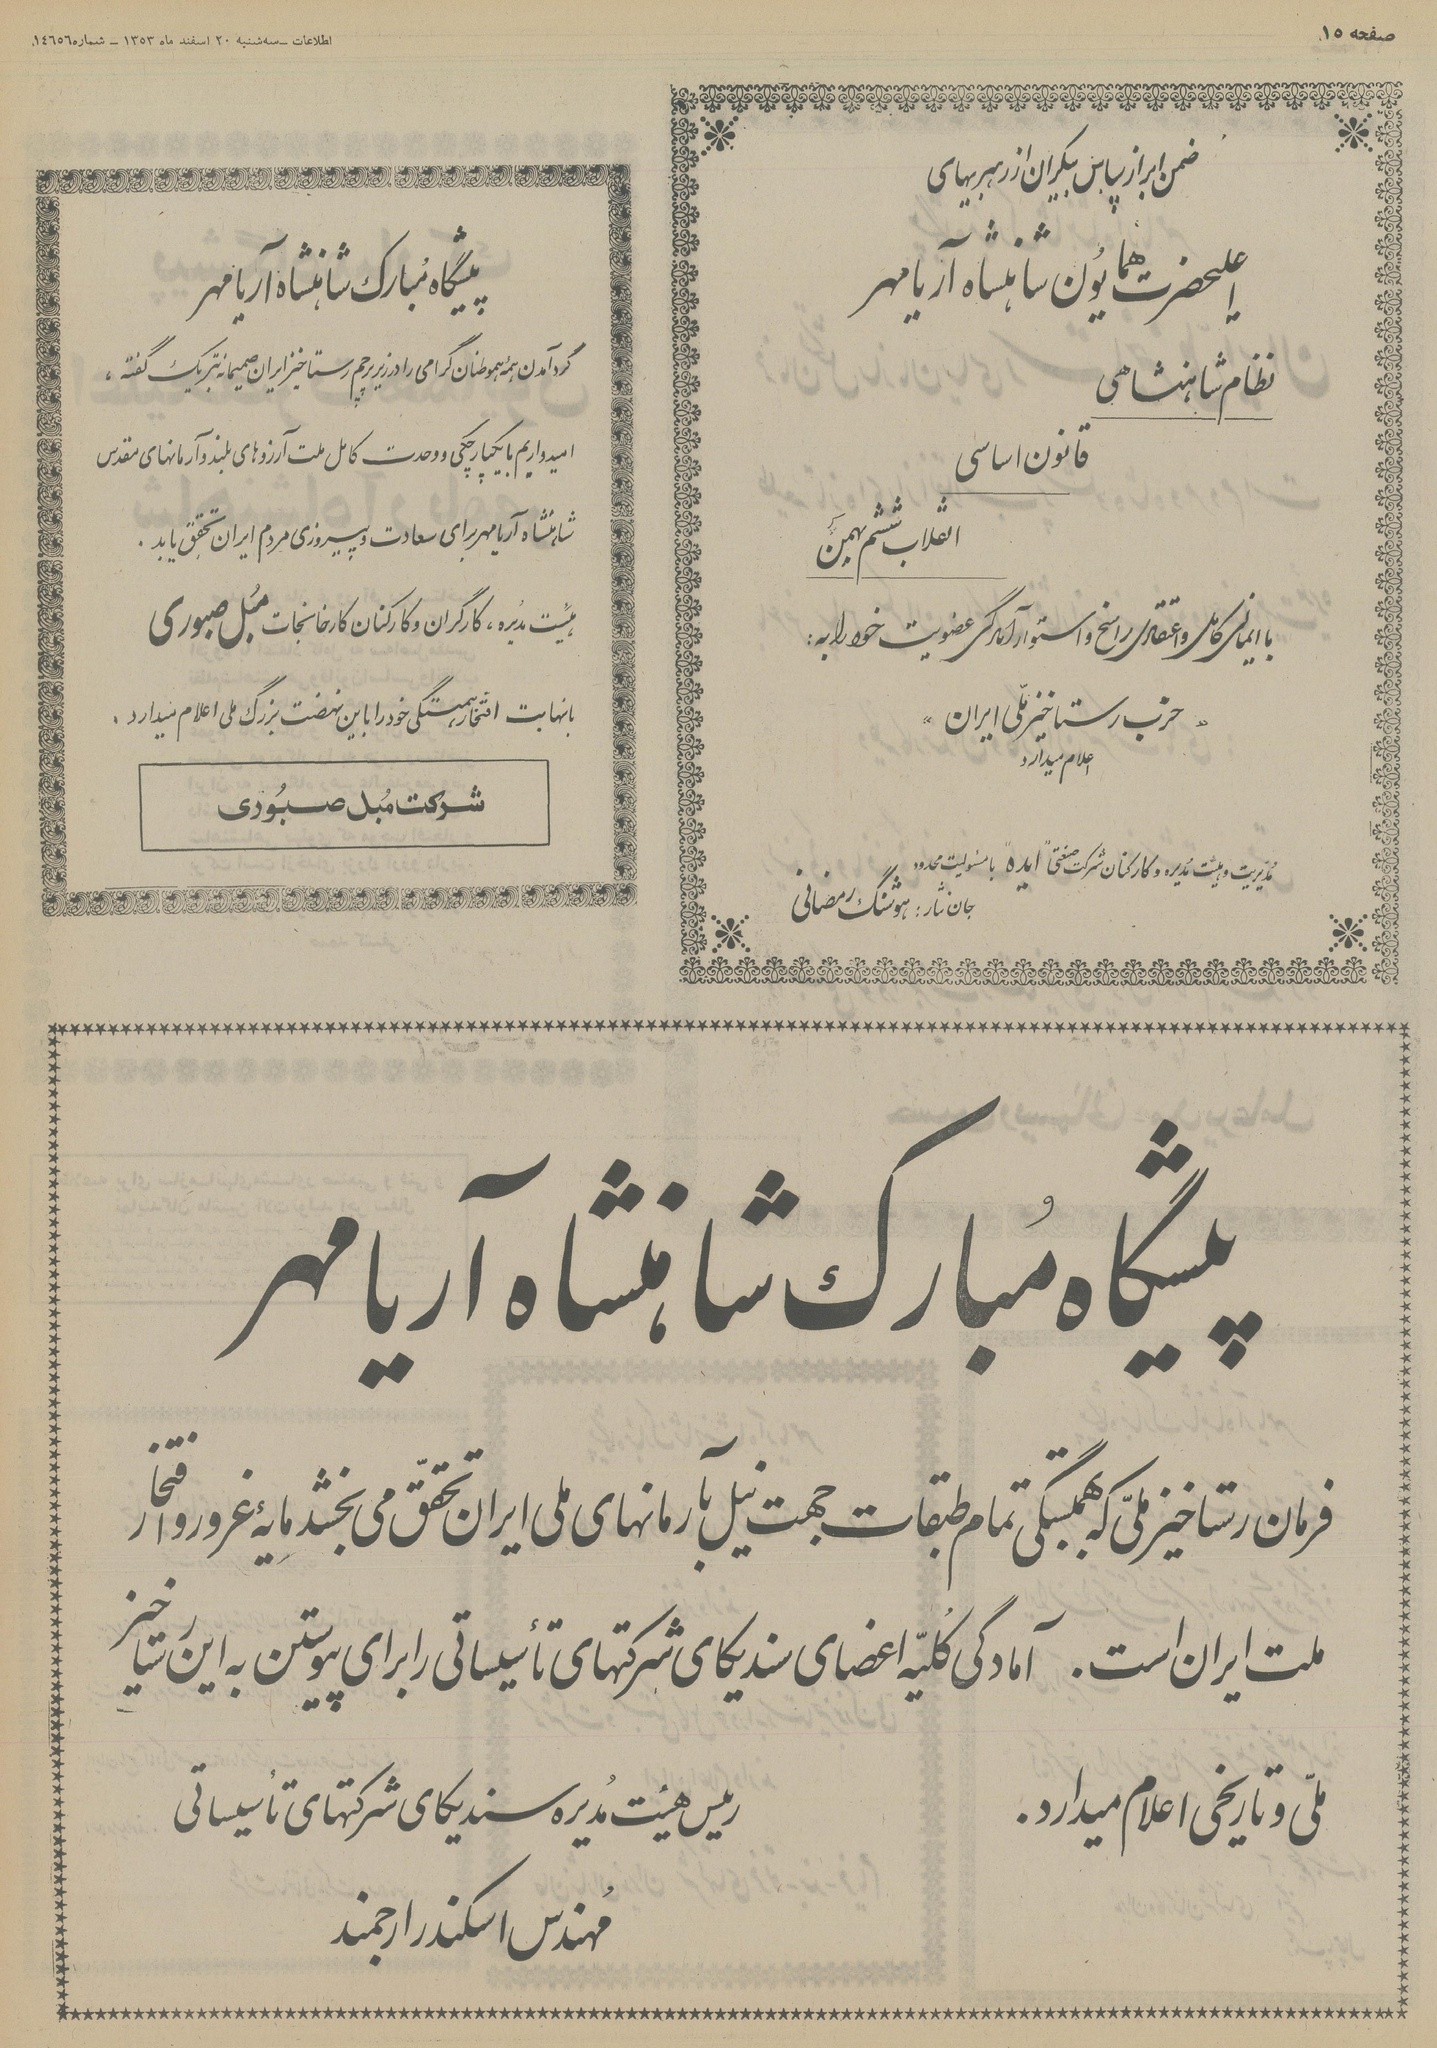 صفحه ۱۵
اطلاعات – سه‌شنبه ۲۰ اسفند ماه ۱۳۵۳ – شماره ۱٤٦٥٦
ضمن ابراز سپاس بیکران از رهبریهای
اعلیحضرت همایون شاهنشاه آریامهر
نظام شاهنشاهی
قانون اساسی
انقلاب ششم بهمن
با ایمانی کامل و اعتقادی راسخ و استوار آمادگی عضویت خود را به :
« حزب رستاخیز ملّی ایران »
اعلام میدارد
مدیریت و هیئت مدیره و کارکنان شرکت صنعتی "ایده" با مسئولیت محدود
جان نثار : هوشنگ رمضانی
پیشگاه مُبارک شاهنشاه آریامهر
گردآمدن همهٔ هموطنان گرامی را در زیر پرچم رستاخیز ایران صمیمانه تبریک گفته ،
امیدواریم با یکپارچگی و وحدت کامل ملت آرزوهای بلند و آرمانهای مقدس
شاهنشاه آریامهر برای سعادت و پیروزی مردم ایران تحقق یابد .
هیئت مدیره ، کارگران و کارکنان کارخانجات مُبل صبوری
با نهایت افتخار همبستگی خود را با این نهضت بزرگ ملی اعلام میدارد .
شرکت مُبل صبُوری
پیشگاه مُبارک شاهنشاه آریامهر
فرمان رستاخیز ملّی که همبستگی تمام طبقات جهت نیل بآرمانهای ملی ایران تحقّق می بخشد مایهٔ غرور و افتخار
ملت ایران است . آمادگی کُلیّه اعضای سندیکای شرکتهای تأسیساتی را برای پیوستن به این رستاخیز
ملّی و تاریخی اعلام میدارد .
رئیس هیئت مُدیره سندیکای شرکتهای تأسیساتی
مُهندس اسکندر ارجمند